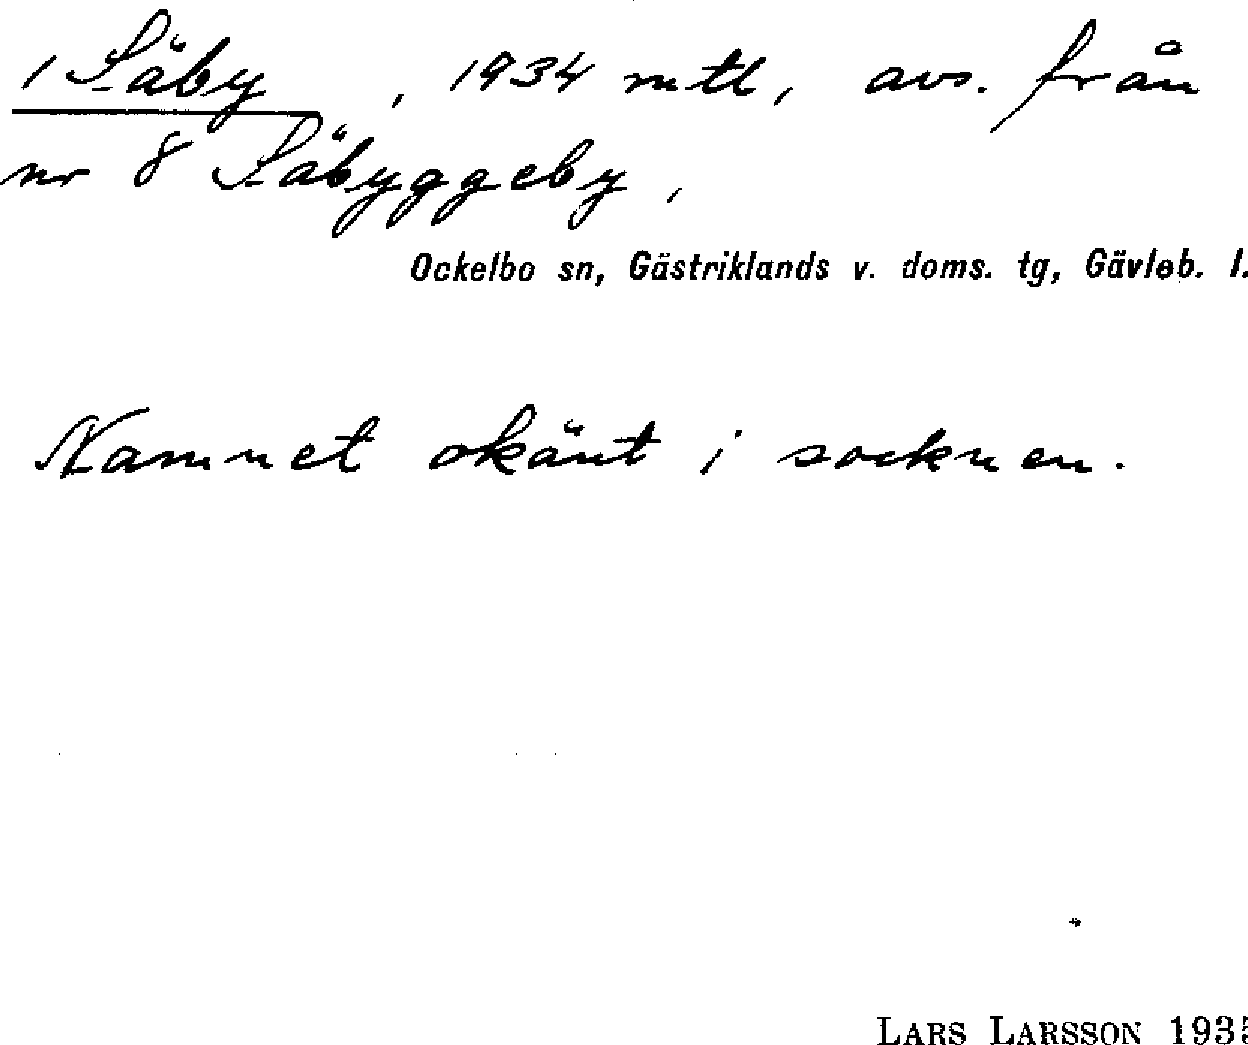 1 Säby, 1934 mtl, avs. från
nr 8 Säbyggeby,
Ockelbo sn, Gästriklands v. doms. tg, Gävleb. l.
Namnet okänt i socknen.
LARS LARSSON 1935